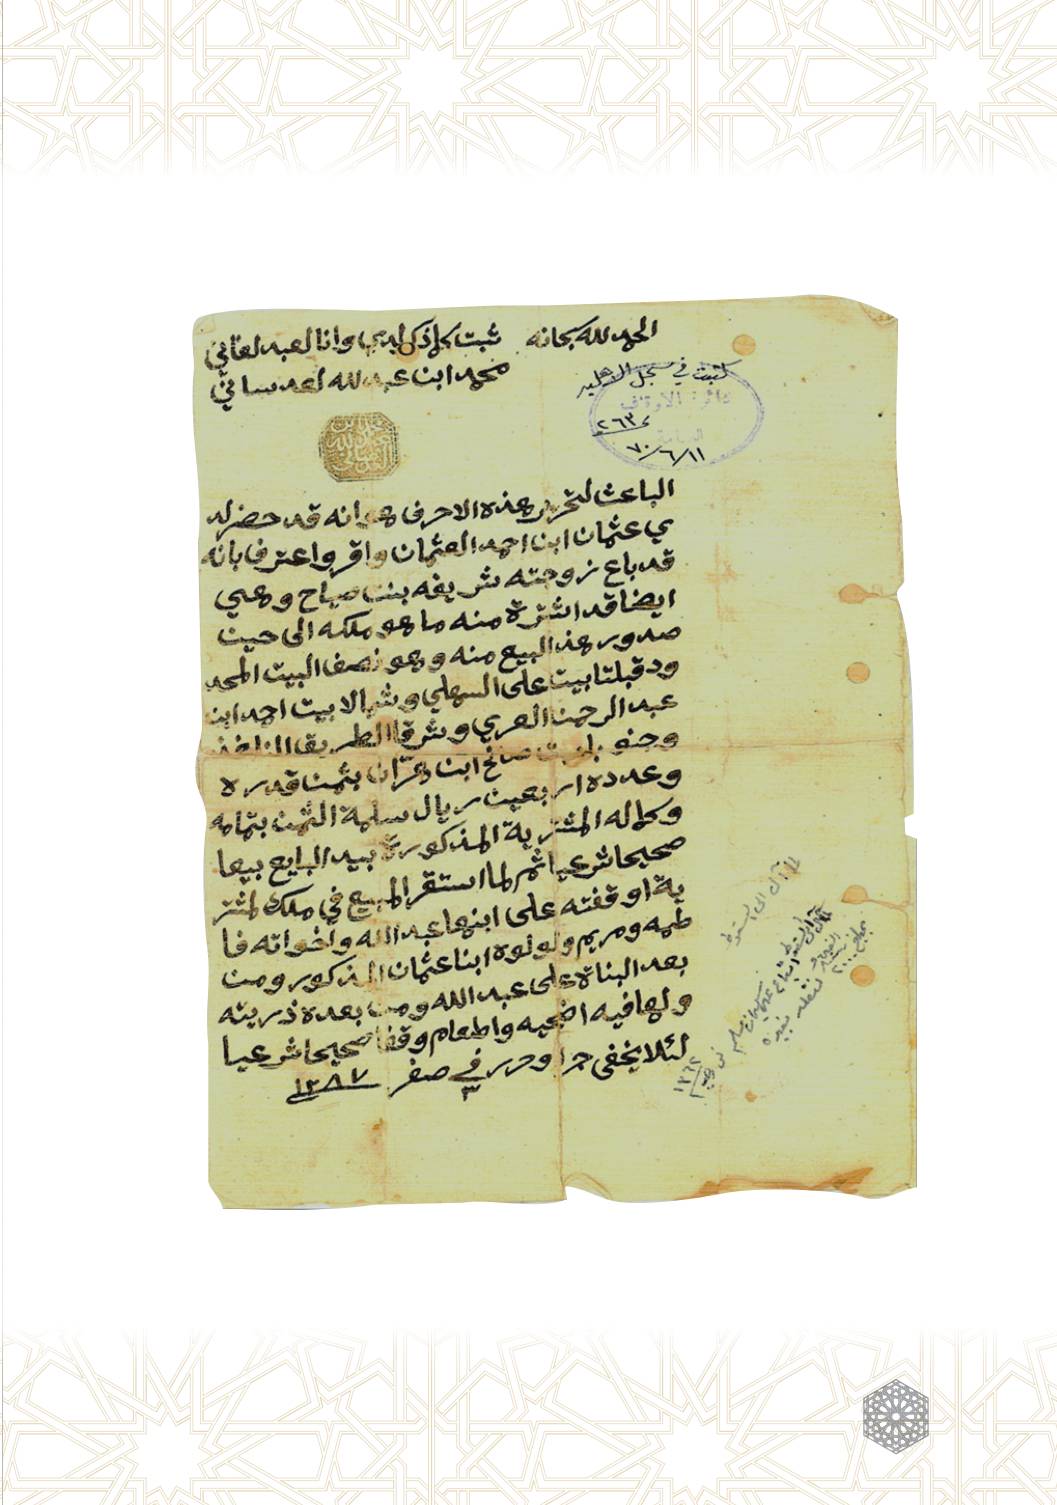 الحمد لله سبحانه
ثبت كلما ذكر لدي وانا العبد لفاني
محمد ابن عبد لله لعدساني
كتبت في سجل الاهليه
دائرة الاوقاف العامة
٢٦٣
٧٠/٦/١١
الباعث لتحرير هذه الاحرف هو انه قد حضر لد
ي عثمان ابن احمد العثمان واقر واعترف بانه
قد باع زوجته شريفه بنت صياح وهي
ايضا قد اشترة منه ما هو ملكه الى حين
صدور هذ البيع منه وهو نصف البيت المحد
ود قبلتا بيت على السهلي وشمالا بيت احمد ابن
عبد الرحمن العري وشرقا الطريق النافذ
وجنوبا بيت صالح ابن هزان بثمن قدره
وعدده اربعين ريال سلمة الثمن بتمامه
وكماله المشترية المذكورة بيد البايع بيعا
صحيحا شرعيا ثم لما استقر المبيع في ملك لمشتر
ية اوقفته على ابنها عبد الله واخواته فا
طمه ومريم ولولوه ابنا عثمان المذكور ومن
بعد البناة على عبد الله ومن بعده ذريته
ولها فيه اضحيه واطعام وقفا صحيحا شرعيا
لئلا يخفى جرا وحرر في ٣ صفر ١٢٨٧